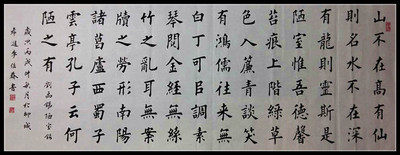 山不在高有仙
則名水不在深
有龍則靈斯是
陋室惟吾德馨
苔痕上階綠草
色入簾青談笑
有鴻儒往來無
白丁可以調素
琴閱金經無絲
竹之亂耳無案
牘之勞形南陽
諸葛廬西蜀子
雲亭孔子云何
陋之有 劉禹錫陋室銘
歲次丙戌仲秋月於聊城